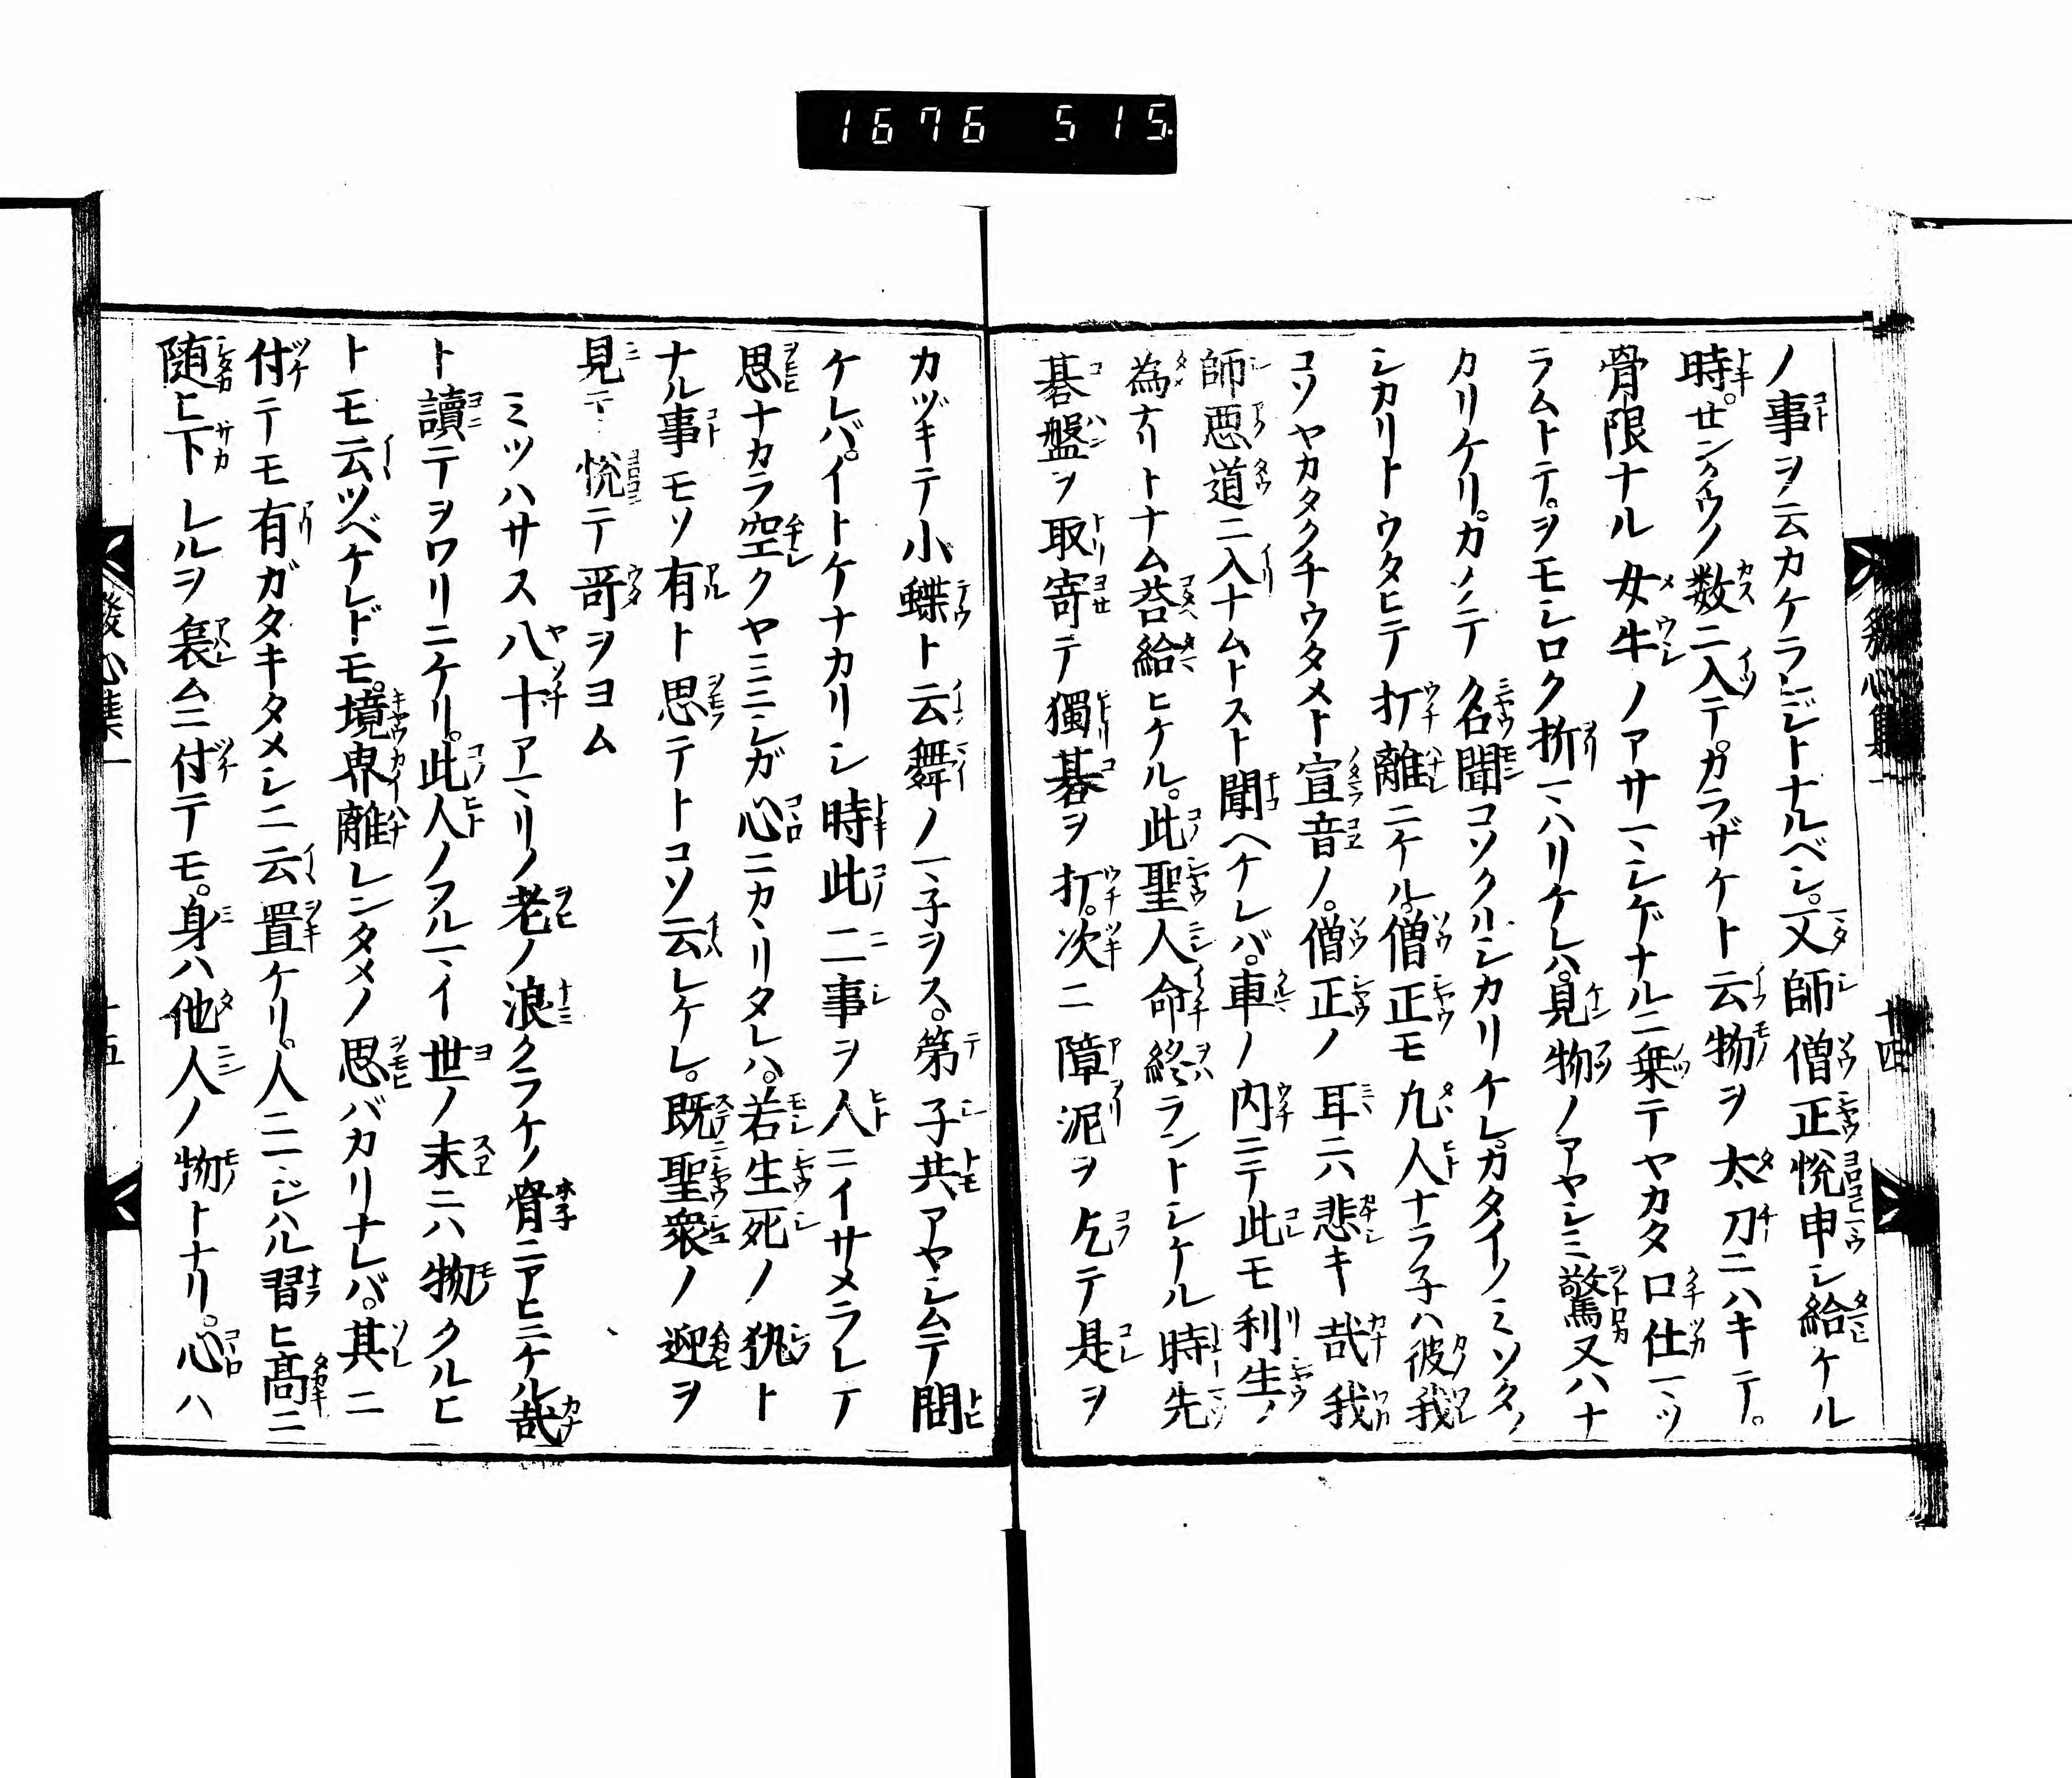 1676 515
ノ事ヲ云カケラレジトナルベシ。又師僧正悦申シ給ケル
時。センクウノ数ニ入テ。カラザケト云物ヲ太刀ニハキテ。
骨限ナル女牛ノアサマシゲナルニ乗テヤカタ口仕マツ
ラムトテ。ヲモシロク折マハリケレハ。見物ノアヤシミ驚又ハナ
カリケリ。カクテ名聞コソクルシカリケレ。カタイノミソタノ
シカリトウタヒテ打離ニケル。僧正モ凡人ナラ子ハ彼我
コソヤカタクチウタメト宣音ノ。僧正ノ耳ニハ悲キ哉我
師悪道ニ入ナムトスト聞ヘケレバ。車ノ内ニテ此モ利生ノ
為ナリトナム答給ヒケル。此聖人命終ラントシケル時先
碁盤ヲ取寄テ獨碁ヲ打。次ニ障泥ヲ乞テ是ヲ
カヅキテ小蝶ト云舞ノマ子ヲス。第子共アヤシムテ問
ケレバ。イトケナカリシ時此二事ヲ人ニイサメラレテ
思ナカラ空クヤミニシガ心ニカヽリタレハ。若生死ノ執ト
ナル事モソ有ト思テトコソ云レケレ。既聖衆ノ迎ヲ
見テ悦テ哥ヲヨム
ミツハサス八十アマリノ老ノ浪クラケノ骨ニアヒニケル哉
ト讀テヲワリニケリ。此人ノフルマイ世ノ末ニハ物クルヒ
トモ云ツベケレドモ。境界離レンタメノ思バカリナレバ。其ニ
付テモ有ガタキタメシニ云置ケリ。人ニマジハル習ヒ高ニ
随ヒ下レルヲ哀ムニ付テモ。身ハ他人ノ物トナリ。心ハ